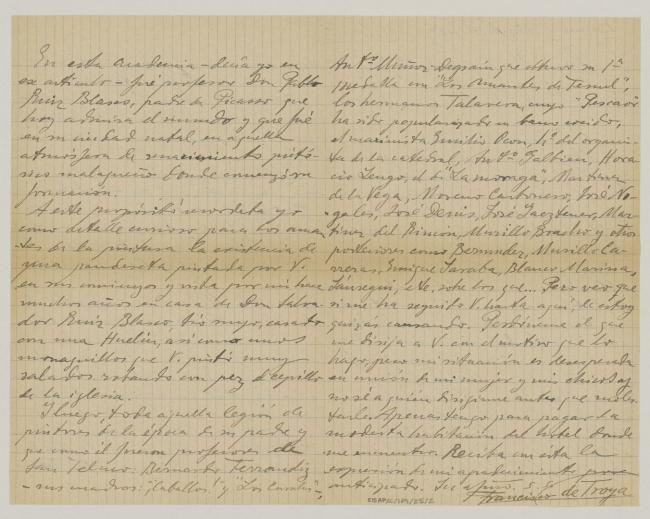 En esta Academia - decía yo en
ese artículo - fué profesor Don Pablo
Ruiz Blasco, padre de Picasso que
hoy admira el mundo y que fué
en su ciudad natal, en aquella
atmósfera de renacimiento pictó-
rico malagueño donde comenzó su
formación.
A este propósito recordaba yo
como detalle curioso para los aman-
tes de la pintura la existencia de
una pandereta pintada por V.
en sus comienzos y vista por mi hace
muchos años en casa de Don Salva-
dor Ruiz Blasco, tío suyo, casado
con una Huelin, asi como unos
monaguillos que V. pintó muy
salados robando con pez del cepillo
de la iglesia.
Y luego, toda aquella legión de
pintores de la época de su padre y
que como él fueron profesores de
San Telmo: Bernardo Ferrandiz
- sus cuadros: "Caballos" y
Antº Muñoz Degrain que obtuvo su 1ª
medalla con "Los Amantes de Teruel",
los hermanos Talavera, cuyo
ha sido popularizado en
el marinista Emilio Ocon, hº del organis-
ta de la catedral, Antº
Horacio Lengo, el de "La moraga", Martinez
de la Vega, Moreno Carbonero, José No-
gales, José Denis, José Mar-
tinez del Rincón, Murillo Bracho y otros
posteriores como Bermudez, Murillo Ca-
rreras, Enrique Jaraba, Blanco Merino,
etc, sobre los que... Pero veo que
si me ha seguido V. hasta aquí, le estoy
quizás cansando. Perdóneme el que
me dirija a V. con el motivo que lo
hago, pero mi situación es desesperada
en unión de mi mujer y mis chicos y
no sé a quien dirigirme antes que moles-
tarle. Apenas tengo para pagar la
modesta habitación del hotel donde
me encuentro. Reciba con esta la
expresión de mi agradecimiento por
anticipado.
Francisco de Troya